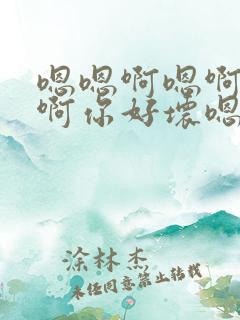 嗯嗯啊嗯啊
啊你好坏嗯
涂林杰
未经同意禁止转载